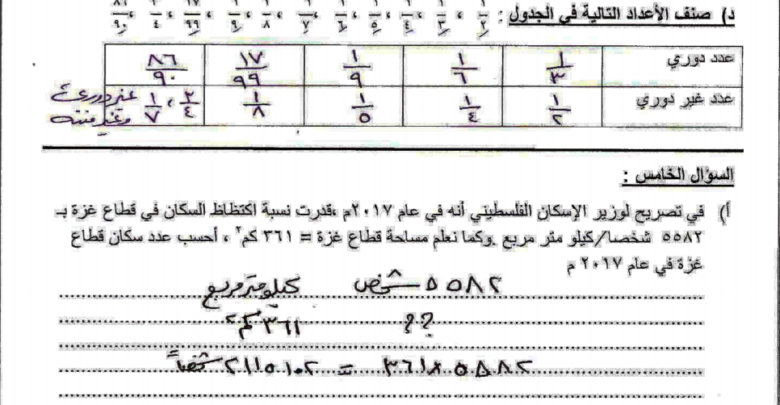 د) صنف الأعداد التالية في الجدول :
عدد دوري ١/٣ ١/٦ ١/٩ ١٧/٩٩ ٨٦/٩٠
عدد غير دوري ١/٢ ١/٤ ١/٥ ١/٨ ٢/٤ ، ١/٧ غير دوري
وغير منته
السؤال الخامس :
أ) في تصريح لوزير الإسكان الفلسطيني أنه في عام ٢٠١٧م ،قدرت نسبة اكتظاظ السكان في قطاع غزة بـ
٥٥٨٢ شخصا/كيلو متر مربع .وكما نعلم مساحة قطاع غزة = ٣٦١ كم٢ ، أحسب عدد سكان قطاع
غزة في عام ٢٠١٧ م
٥٥٨٢ شخص كيلو متر مربع
؟؟ ٣٦١ كم٢
٣٦١×٥٥٨٢ = ٢١١٥١٠٢ شخصاً